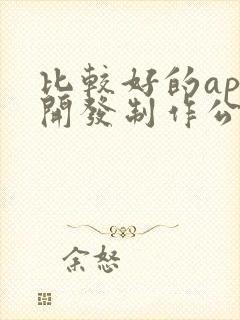 比較好的ap
開發制作公
余怒